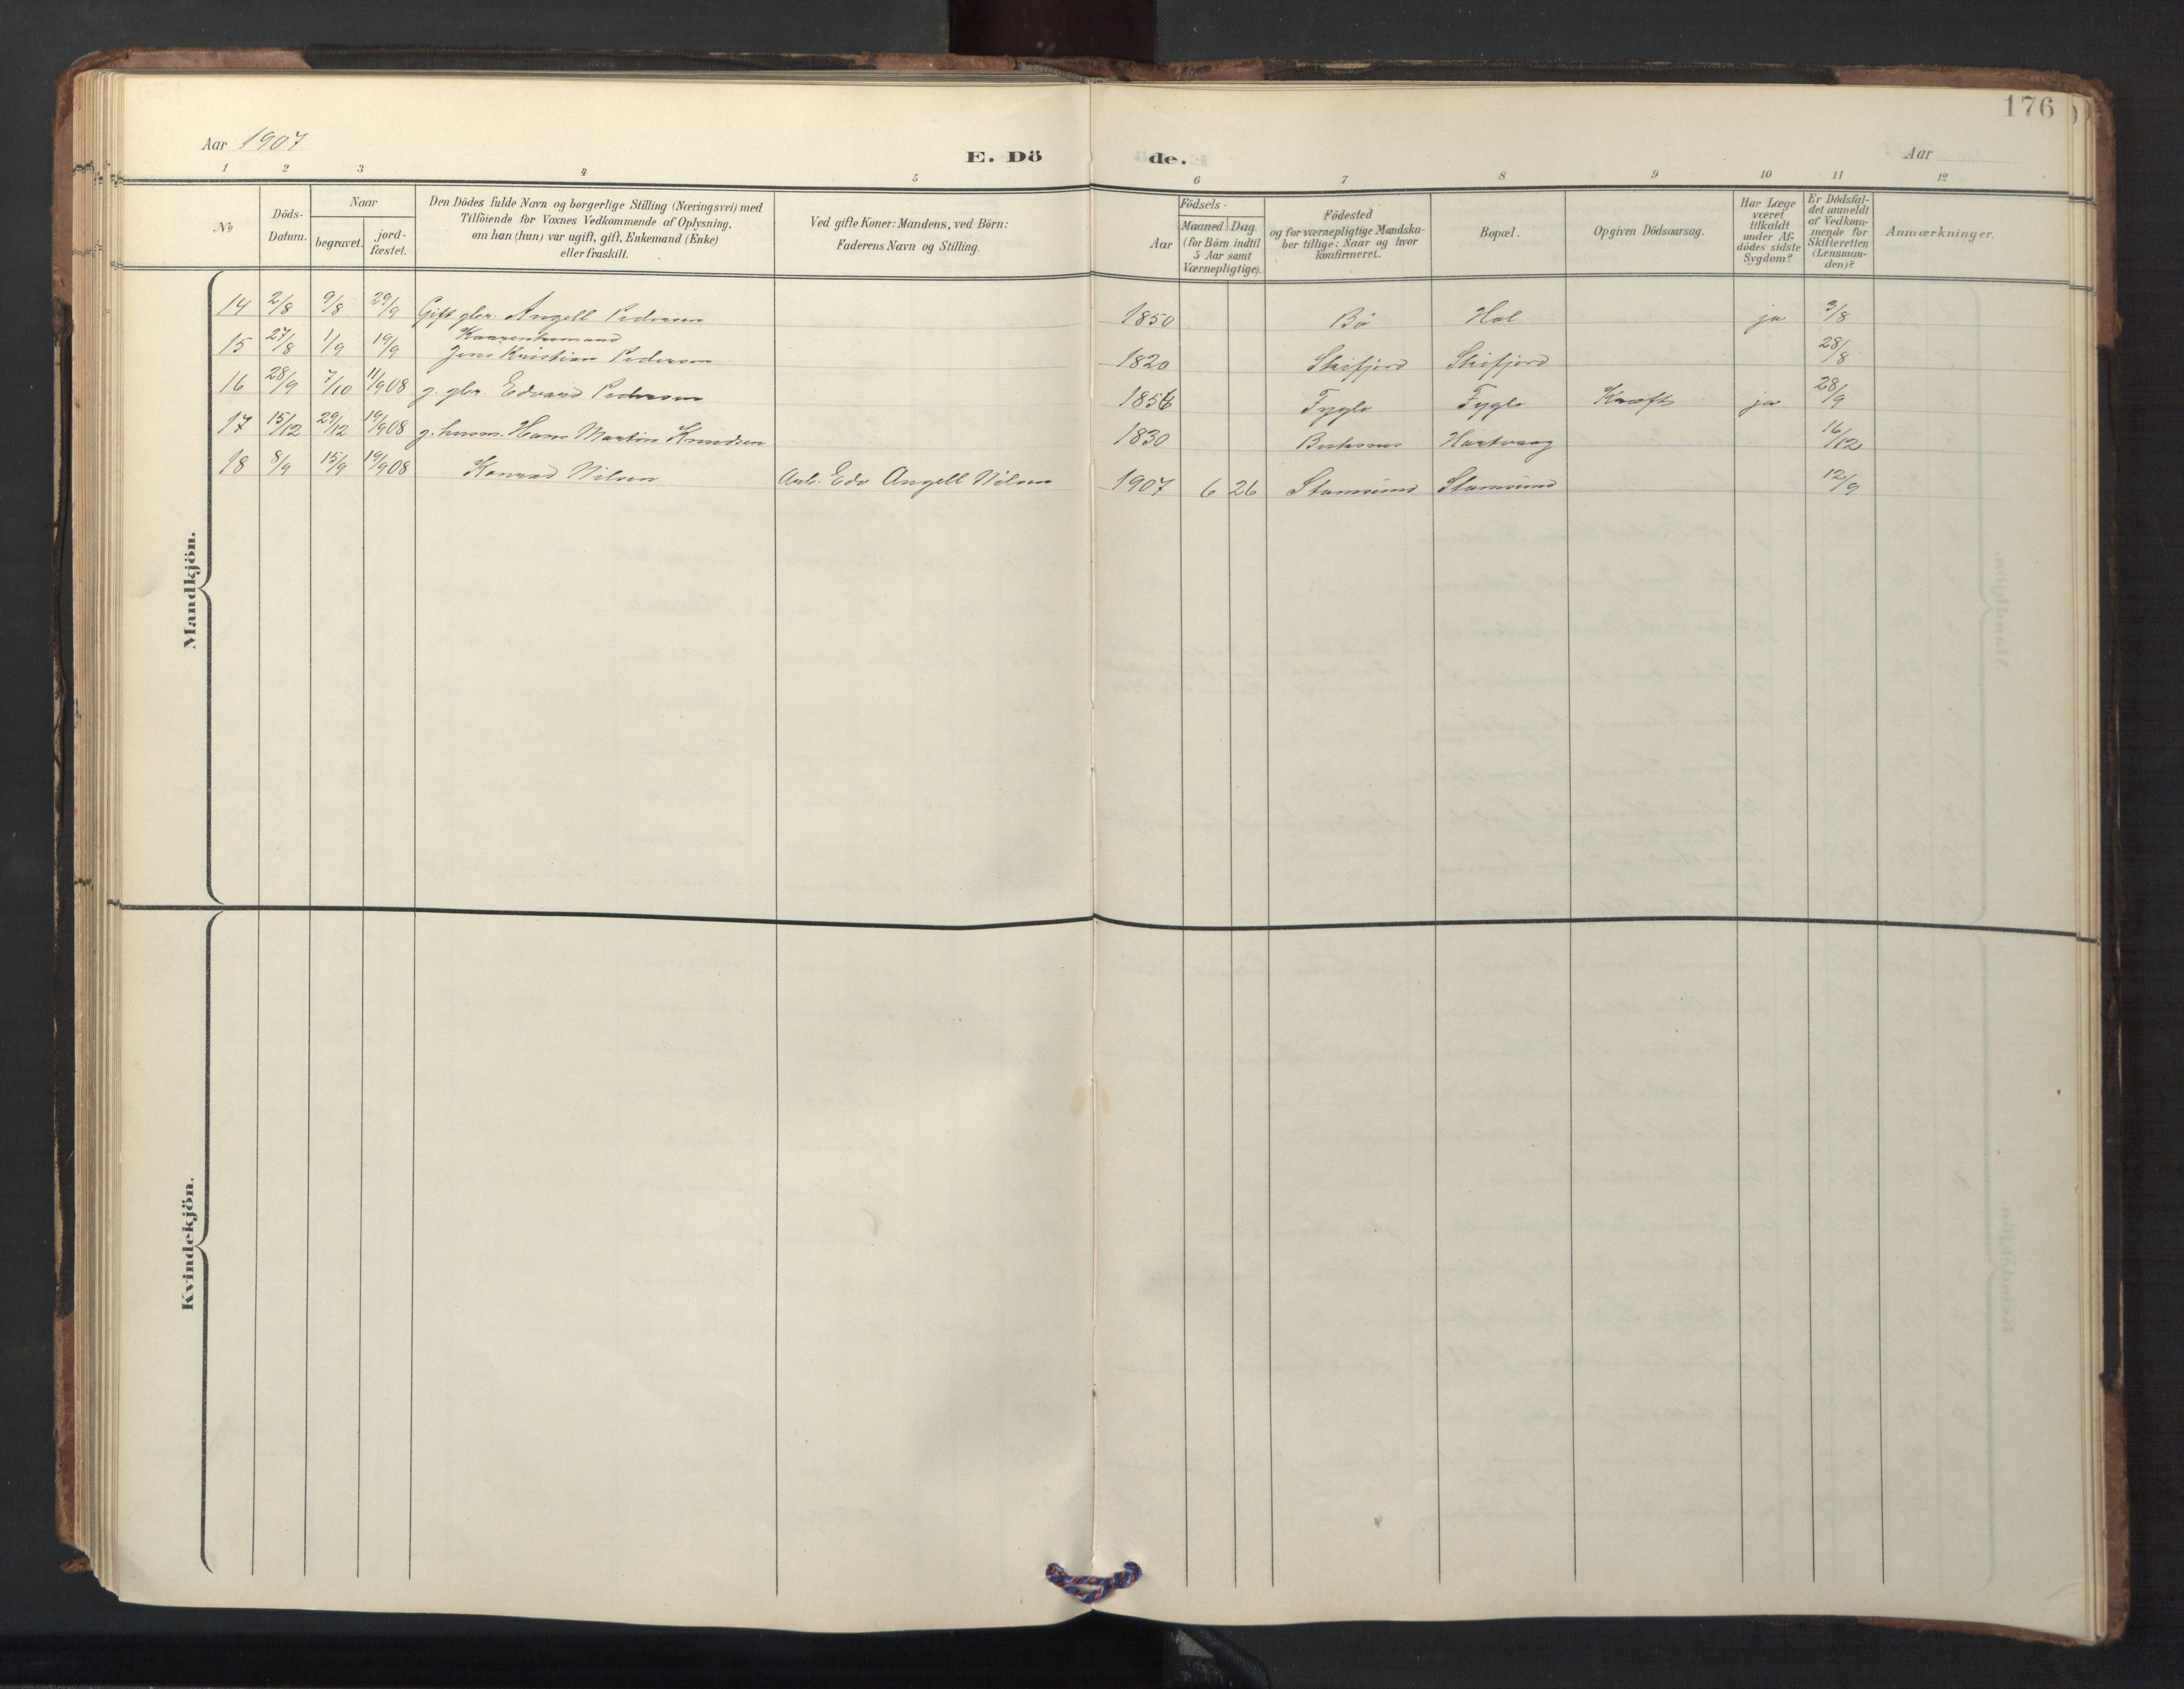 176
Aar 1907
E. Dö
de.
Aar
1 2 3 4 5 6 7 8 9 10 11 12
No
Döds-
Datum.
Naar
begravet.
jord-
fæstet.
Den Dödes fulde Navn og borgerlige Stilling (Næringsvei) med
Tilföiende for Voxnes Vedkommende af Oplysning,
om han (hun) var ugift, gift, Enkemand (Enke)
eller fraskilt.
Ved gifte Koner: Mandens, ved Börn:
Faderens Navn og Stilling.
Födsels-
Aar
Maaned Dag.
(for Börn indtil
5 Aar samt
Værnepligtige).
Födested
og for værnepligtige Mandska-
ber tillige: Naar og hvor
konfirmeret.
Bopæl.
Opgiven Dödsaarsag.
Har Læge
været
tilkaldt
under Af-
dödes sidste
Sygdom?
Er Dödsfal-
det anmeldt
af Vedkom-
mende for
Skifteretten
(Lensman-
den)?
Anmærkninger.
Mandkjön.
14 2/8 9/8 29/9 Gift gbr. Angell Pedersen 1850 Bö Hol ja 3/8
15 27/8 1/9 19/9 Kaarenhusmand
Jens Kristian Pedersen 1820 Skifjord Skifjord 28/8
16 28/9 7/10 11/9 08 g. gbr. Edvard Pedersen 1856 Fygle Fygle Kræft ja 28/9
17 15/12 29/12 19/9 08 g. husm. Hans Martin Knudsen 1830 Buksnes Hartvaag 16/12
18 8/9 15/9 19/9 08 Konrad Nilsen Arb. Edv Angell Nilsen 1907 6 26 Stamsund Stamsund 12/9
Kvindekjön.